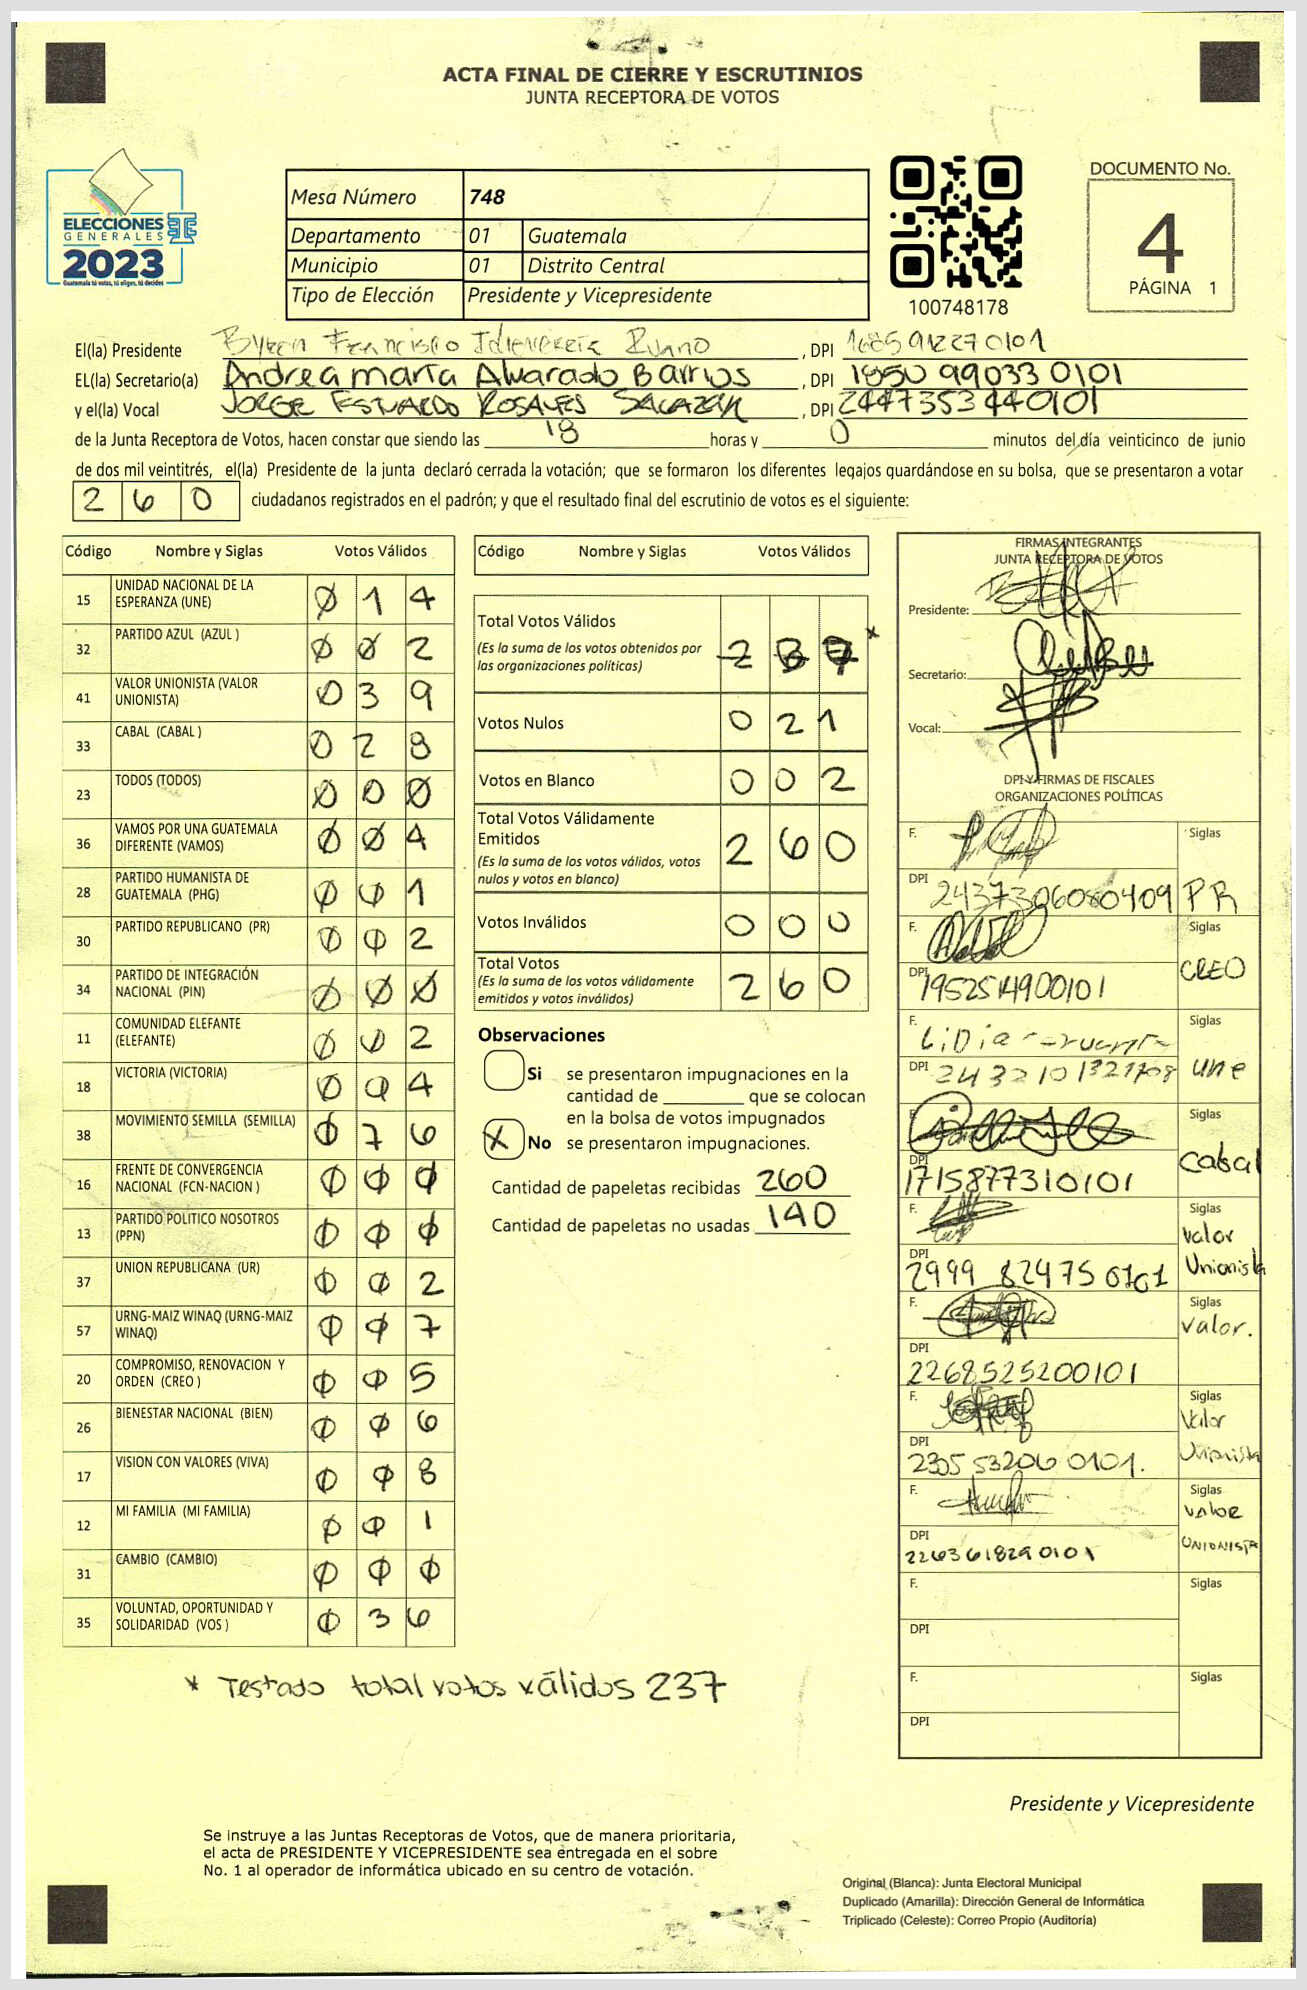 ACTA FINAL DE CIERRE Y ESCRUTINIOS
JUNTA RECEPTORA DE VOTOS
ELECCIONES
GENERALES
2023
Guatemala tú votas, tú eliges, tú decides
Mesa Número 748
Departamento 01 Guatemala
Municipio 01 Distrito Central
Tipo de Elección Presidente y Vicepresidente
100748178
DOCUMENTO No.
4
PÁGINA 1
El(la) Presidente Byron Francisco Ruano , DPI 1685912270101
EL(la) Secretario(a) Andrea maría Alvarado Barrios , DPI 1850 99033 0101
y el(la) Vocal JORGE ESTUARDO ROSALES SALAZAR , DPI 2447353440101
de la Junta Receptora de Votos, hacen constar que siendo las 18 horas y 0 minutos del día veinticinco de junio
de dos mil veintitrés, el(la) Presidente de la junta declaró cerrada la votación; que se formaron los diferentes legajos guardándose en su bolsa, que se presentaron a votar
260 ciudadanos registrados en el padrón; y que el resultado final del escrutinio de votos es el siguiente:
Código Nombre y Siglas Votos Válidos
15 UNIDAD NACIONAL DE LA ESPERANZA (UNE) 014
32 PARTIDO AZUL (AZUL ) 002
41 VALOR UNIONISTA (VALOR UNIONISTA) 039
33 CABAL (CABAL ) 028
23 TODOS (TODOS) 000
36 VAMOS POR UNA GUATEMALA DIFERENTE (VAMOS) 004
28 PARTIDO HUMANISTA DE GUATEMALA (PHG) 001
30 PARTIDO REPUBLICANO (PR) 002
34 PARTIDO DE INTEGRACIÓN NACIONAL (PIN) 000
11 COMUNIDAD ELEFANTE (ELEFANTE) 002
18 VICTORIA (VICTORIA) 004
38 MOVIMIENTO SEMILLA (SEMILLA) 076
16 FRENTE DE CONVERGENCIA NACIONAL (FCN-NACION ) 000
13 PARTIDO POLITICO NOSOTROS (PPN) 000
37 UNION REPUBLICANA (UR) 002
57 URNG-MAIZ WINAQ (URNG-MAIZ WINAQ) 007
20 COMPROMISO, RENOVACION Y ORDEN (CREO ) 005
26 BIENESTAR NACIONAL (BIEN) 006
17 VISION CON VALORES (VIVA) 008
12 MI FAMILIA (MI FAMILIA) 001
31 CAMBIO (CAMBIO) 000
35 VOLUNTAD, OPORTUNIDAD Y SOLIDARIDAD (VOS ) 036
* Testado total votos válidos 237
Código Nombre y Siglas Votos Válidos
Total Votos Válidos 237 *
(Es la suma de los votos obtenidos por
las organizaciones políticas)
Votos Nulos 021
Votos en Blanco 002
Total Votos Válidamente
Emitidos 260
(Es la suma de los votos válidos, votos
nulos y votos en blanco)
Votos Inválidos 000
Total Votos 260
(Es la suma de los votos válidamente
emitidos y votos inválidos)
Observaciones
Si se presentaron impugnaciones en la
cantidad de ________ que se colocan
en la bolsa de votos impugnados
X No se presentaron impugnaciones.
Cantidad de papeletas recibidas 260
Cantidad de papeletas no usadas 140
FIRMAS INTEGRANTES
JUNTA RECEPTORA DE VOTOS
Presidente:
Secretario:
Vocal:
DPI Y FIRMAS DE FISCALES
ORGANIZACIONES POLÍTICAS
F. Siglas
DPI 2437306080409 PR
F. Siglas
DPI 1952514900101 CREO
F. Lidia Siglas
DPI 2432101321708 une
F. Siglas
DPI 1715877310101 Cabal
F. Siglas
DPI 2999 82475 0101 Valor Unionista
F. Siglas
DPI 2268525200101 Valor.
F. Siglas
DPI 2305 53206 0101. Valor Unionista
F. Siglas
DPI 2263618290101 VALOR UNIONISTA
F. Siglas
DPI
F. Siglas
DPI
Presidente y Vicepresidente
Se instruye a las Juntas Receptoras de Votos, que de manera prioritaria,
el acta de PRESIDENTE Y VICEPRESIDENTE sea entregada en el sobre
No. 1 al operador de informática ubicado en su centro de votación.
Original (Blanca): Junta Electoral Municipal
Duplicado (Amarilla): Dirección General de Informática
Triplicado (Celeste): Correo Propio (Auditoría)